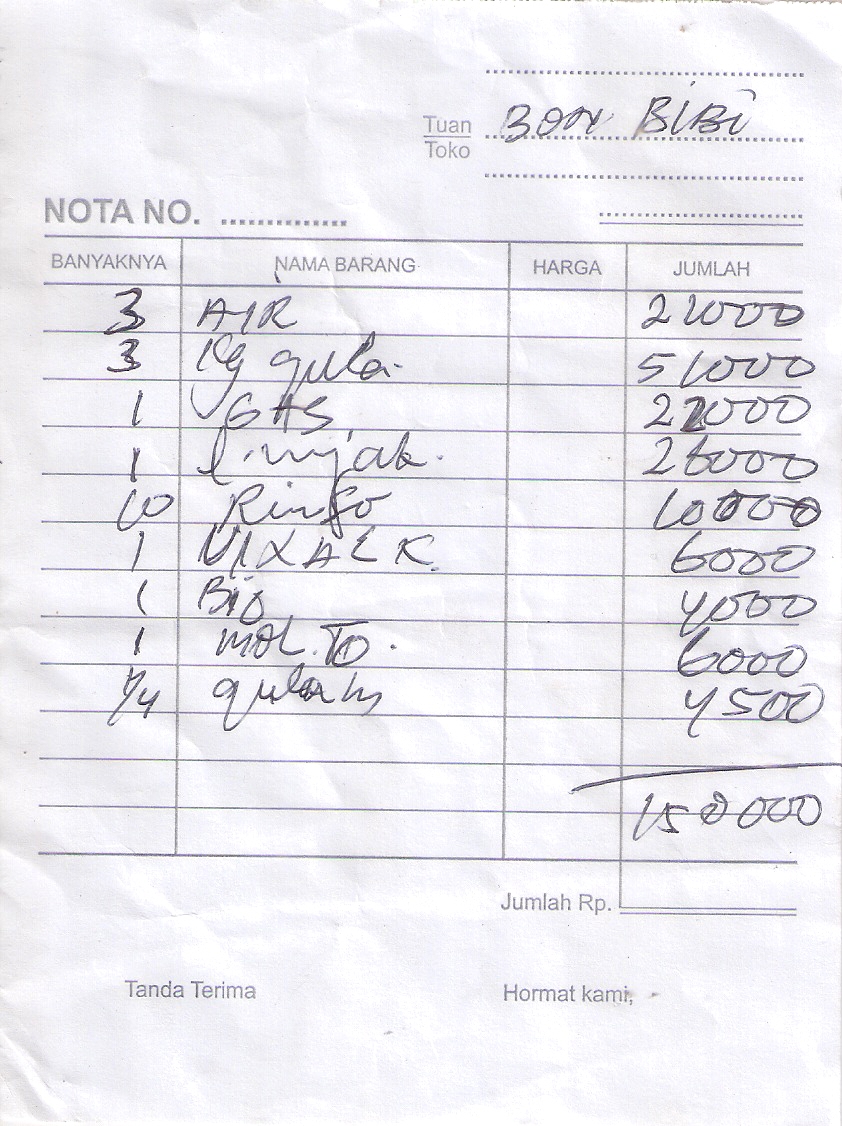 Tuan BON BIBI
Toko
NOTA NO. ..............
BANYAKNYA NAMA BARANG HARGA JUMLAH
3 AIR 21000
3 Kg gula. 51000
1 GAS 22000
1 minyak. 28000
10 Rinso 10000
1 6000
1 BIO 4000
1 MOL.TO. 6000
1/4 gula 4500
150000
Jumlah Rp.
Tanda Terima Hormat kami,